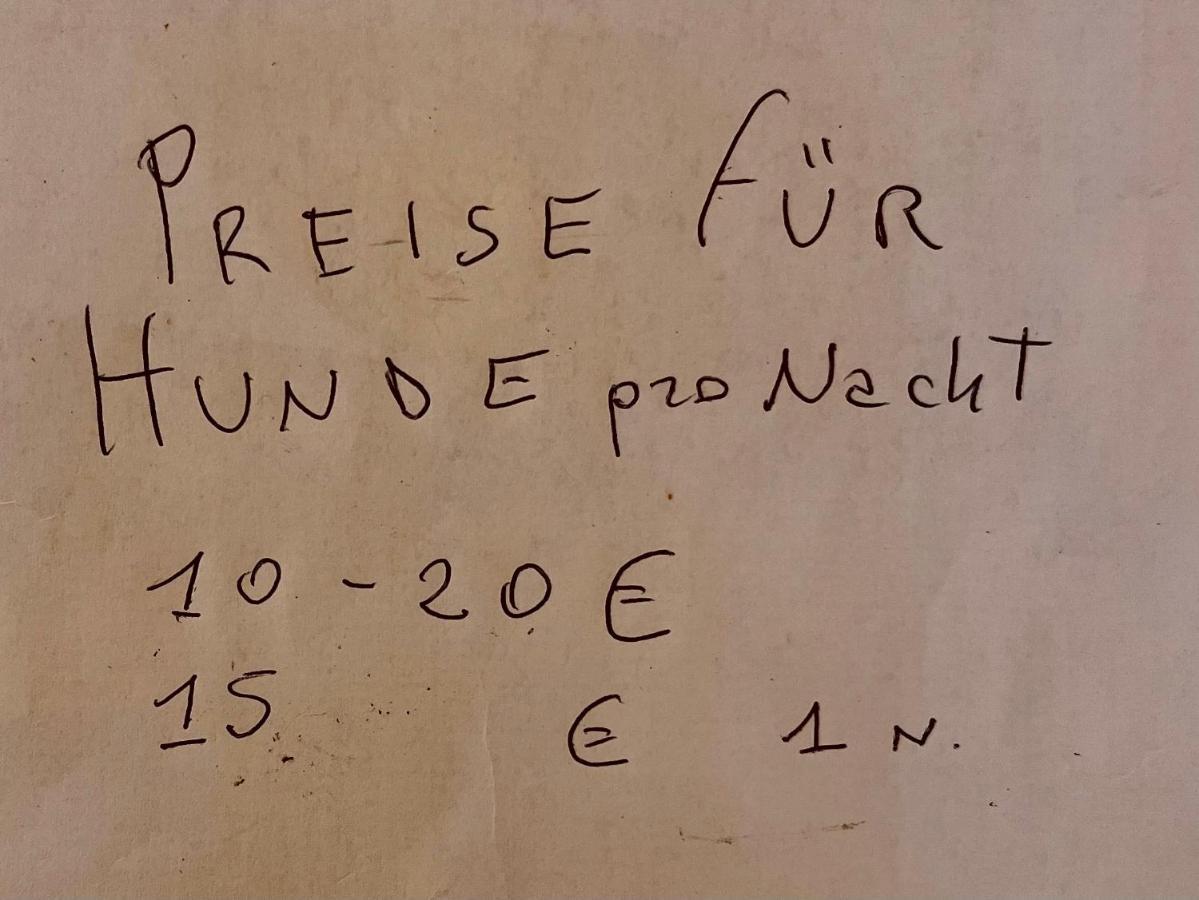 PREISE FÜR
HUNDE pro Nacht
10-20 €
15 € 1 N.